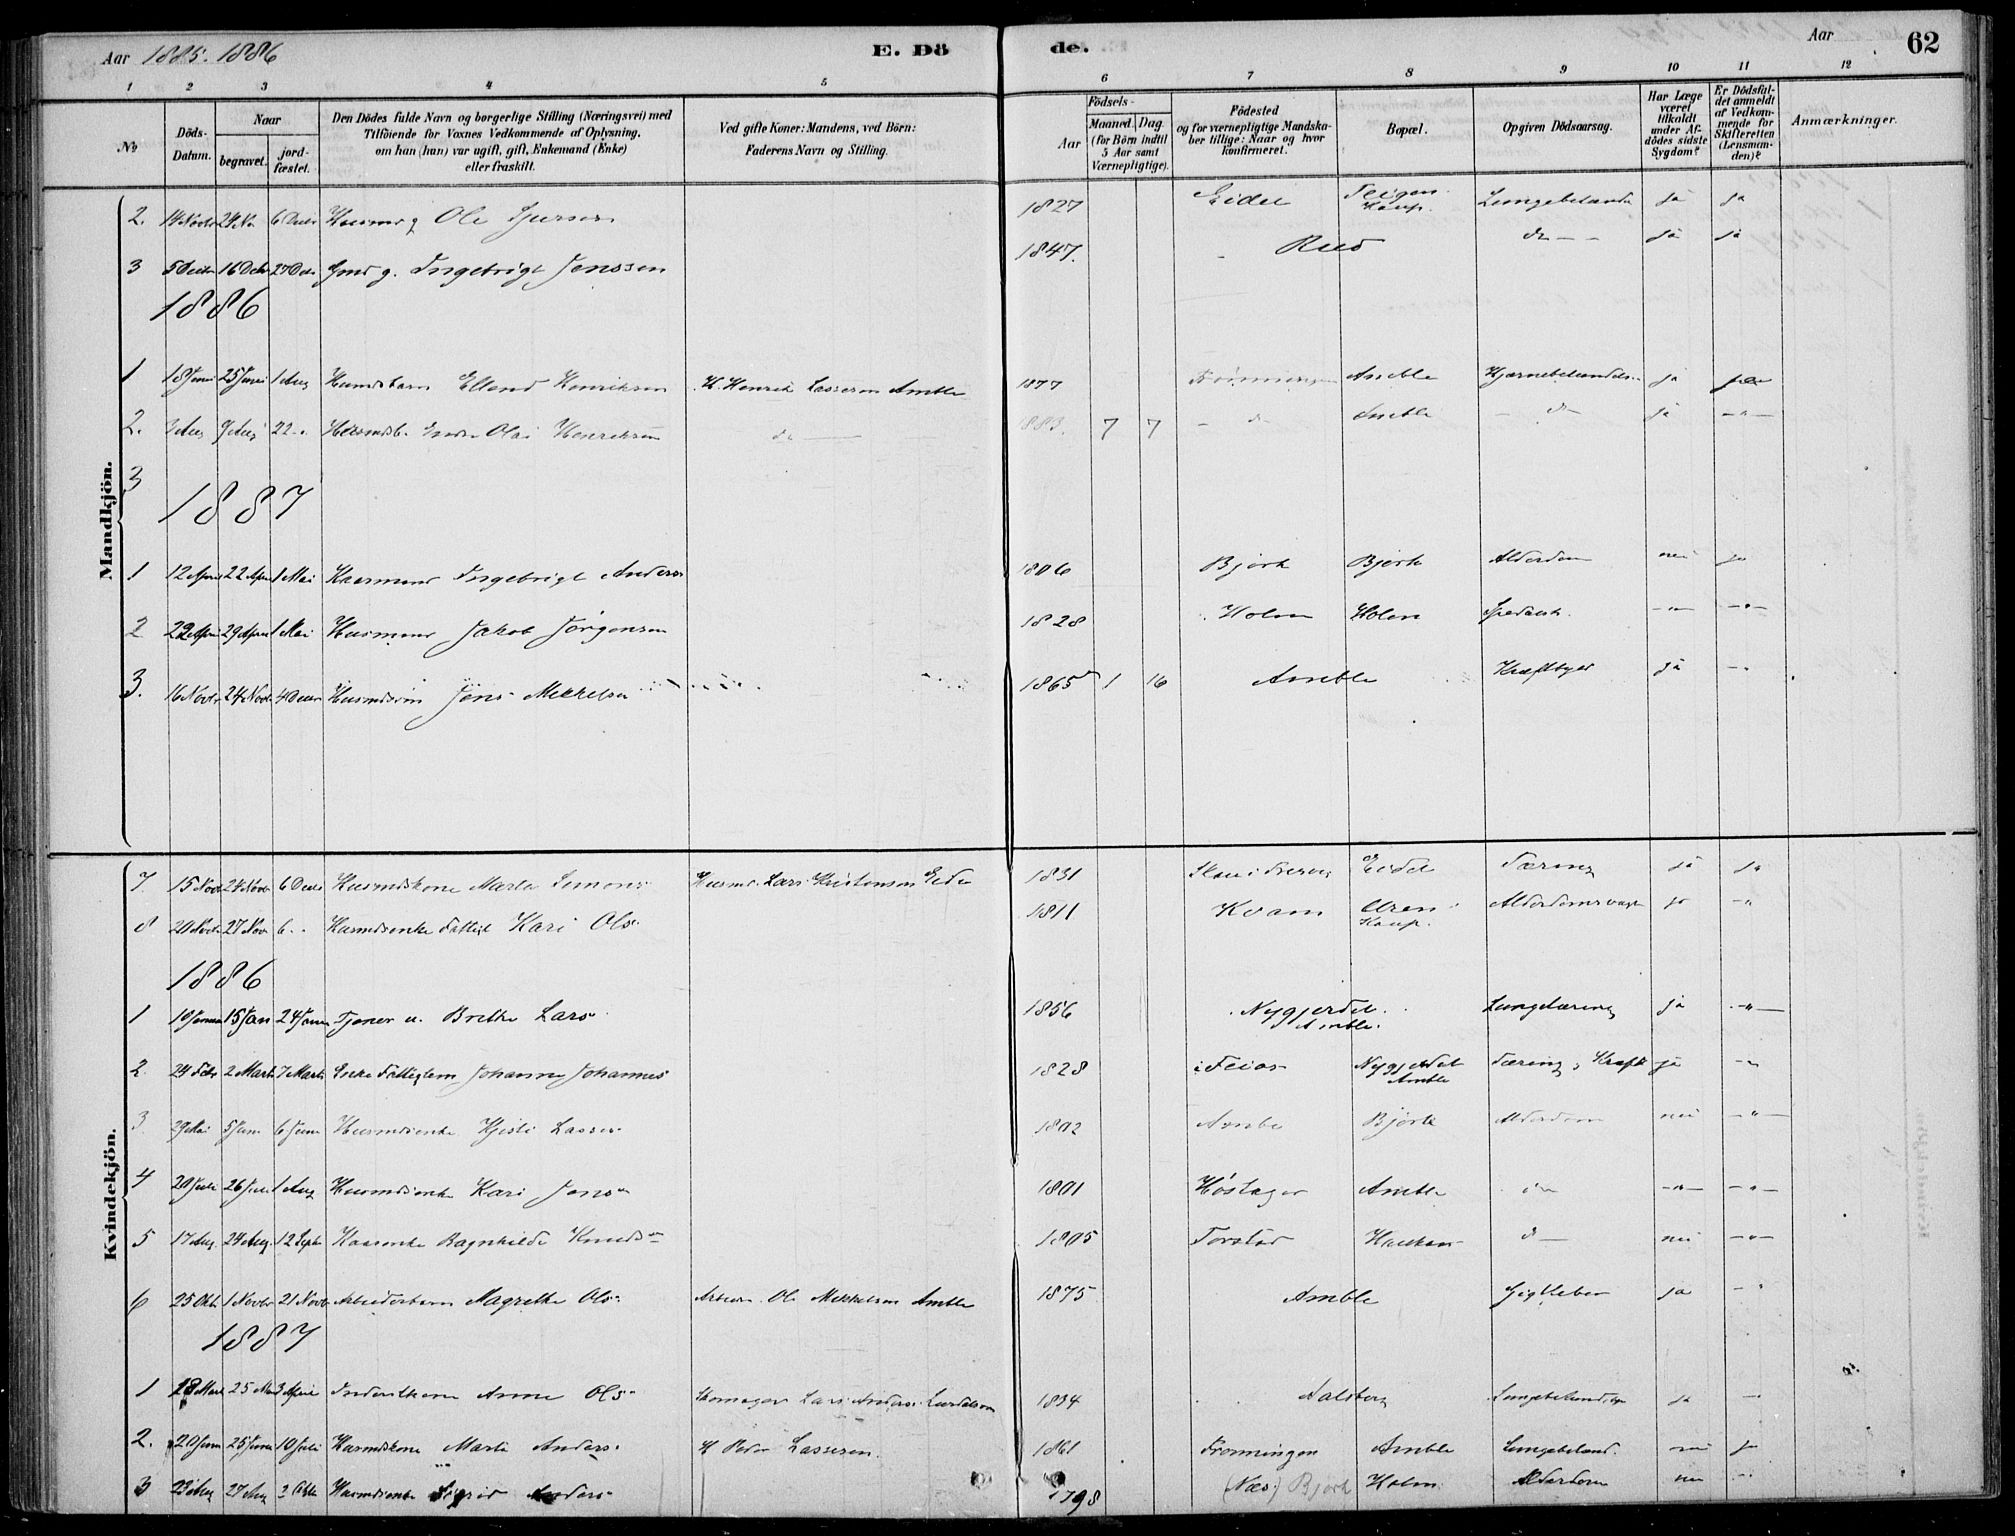 Aar 1885. 1886 E. Dö de. Aar 62
1 2 3 4 5 6 7 8 9 10 11 12
No Döds-Datum. Naar begravet. jord-fæstet. Den Dödes fulde Navn og borgerlige Stilling (Næringsvei) med Tilföiende for Voxnes Vedkommende af Oplysning. om han (hun) var ugift, gift, Enkemand (Enke) eller fraskilt. Ved gifte Koner: Mandens, ved Börn: Faderens Navn og Stilling. Födsels- Aar Maaned. Dag (for Börn indtil 5 Aar samt Værnepligtige). Födested og for værnepligtige Mandskaber tillige: Naar og hvor konfirmeret. Bopæl. Opgiven Dödsaarsag. Har Læge været tilkaldt under Afdödes sidste Sygdom? Er Dödsfaldet anmeldt af Vedkommende for Skifteretten (Lensmanden)? Anmærkninger.
Mandkjön.
2. 14 Novbr 24 No 6 Decbr Husm g Ole 1827 Eidet Kaup. Lungebetænd ja ja
3 5 Decbr 16 Decbr 27 Dec g. Ingebrigt Jenssen 1847. Rud do ja ja
1886
1 18 Juni 25 Juni 1 Aug Husmdsbarn Erland Henriksen H. Henrik Lassesen Amble 1877 Amble Hjernebetændelse ja ja
2. 3 Aug 9 Aug 22 Husmdsb. Endre Olai Henriksen do 1883. 7 7 do Amble do ja -"-
3
1887
1 12 April 22 Apri 1 Mai Kaarmand Ingebrigt Anders 1806 Bjørk Bjørk Alderdom nei ja
2 22 April 29 April 1 Mai Husmand Jakob Jörgensen 1828 Holm Holm Spedalsk. -"- -"-
3. 16 Novbr 24 Novbr 4 Decbr Husmdssøn Jens Mikkelsen 1865 1 16 Amble Kræftbyld ja -"-
Kvindekjön.
7. 15 Novb 24 Novbr 6 Decbr Husmdskone Marta Simons Husm. Lars Kristensen Eide 1831 Eidet Tæring ja ja
8 20 Novbr 27 Nov 6 Husmdsenke Fattigl Kari Ols 1811 Kvam Uren Kaup. Alderdomssvagh ja -"-
1886
1 10 Januar 15 Jan 24 Januar Tjener u. Brithe Lars 1856 Nygjerdet Amble. Lungetæring ja -"-
2. 24 Febr 2 Marts 7 Marts Enke Fattiglem Johanne Johannes 1828 i Feios Nygjerdet Amble Tæring, Kræft ja -"-
3 29 Mai 5 Juni 6 Juni Husmdsenke Kjersti Lasses 1802 Amble Bjørk Alderdom nei -"-
4 20 Juli 26 Juli 1 Aug Husmdsenke Kari Jens 1801 Høstager Amble do -"- -"-
5 17 Aug. 24 Aug. 12 Septb Kaarenke Ragnhilde Knuds 1805 Torstad Haukaas do nei -"-
6 25 Okt 1 Novbr 21 Novb Arbeiderbarn Magrethe Ols Arbeider Ole Mikkelsen Amble 1875 Amble Gigtfeber ja -"-
1887
1 18 Mart 25 Ma 3 April Inderstkone Anne Ols Skomager Lars Anders 1834 Aalsberg Lungebetændelse ja -"-
2. 20 Juni 25 Juni 10 Juli Husmdskone Marta Anders H Peder Lassesen 1861 Fronningen Amble Lungebetænd. nei ja
3 23 Aug 27 Aug Husmdsenke Sigrid Anders 1798 (Næs:) Bjørk Holm Alderdom nei -"-